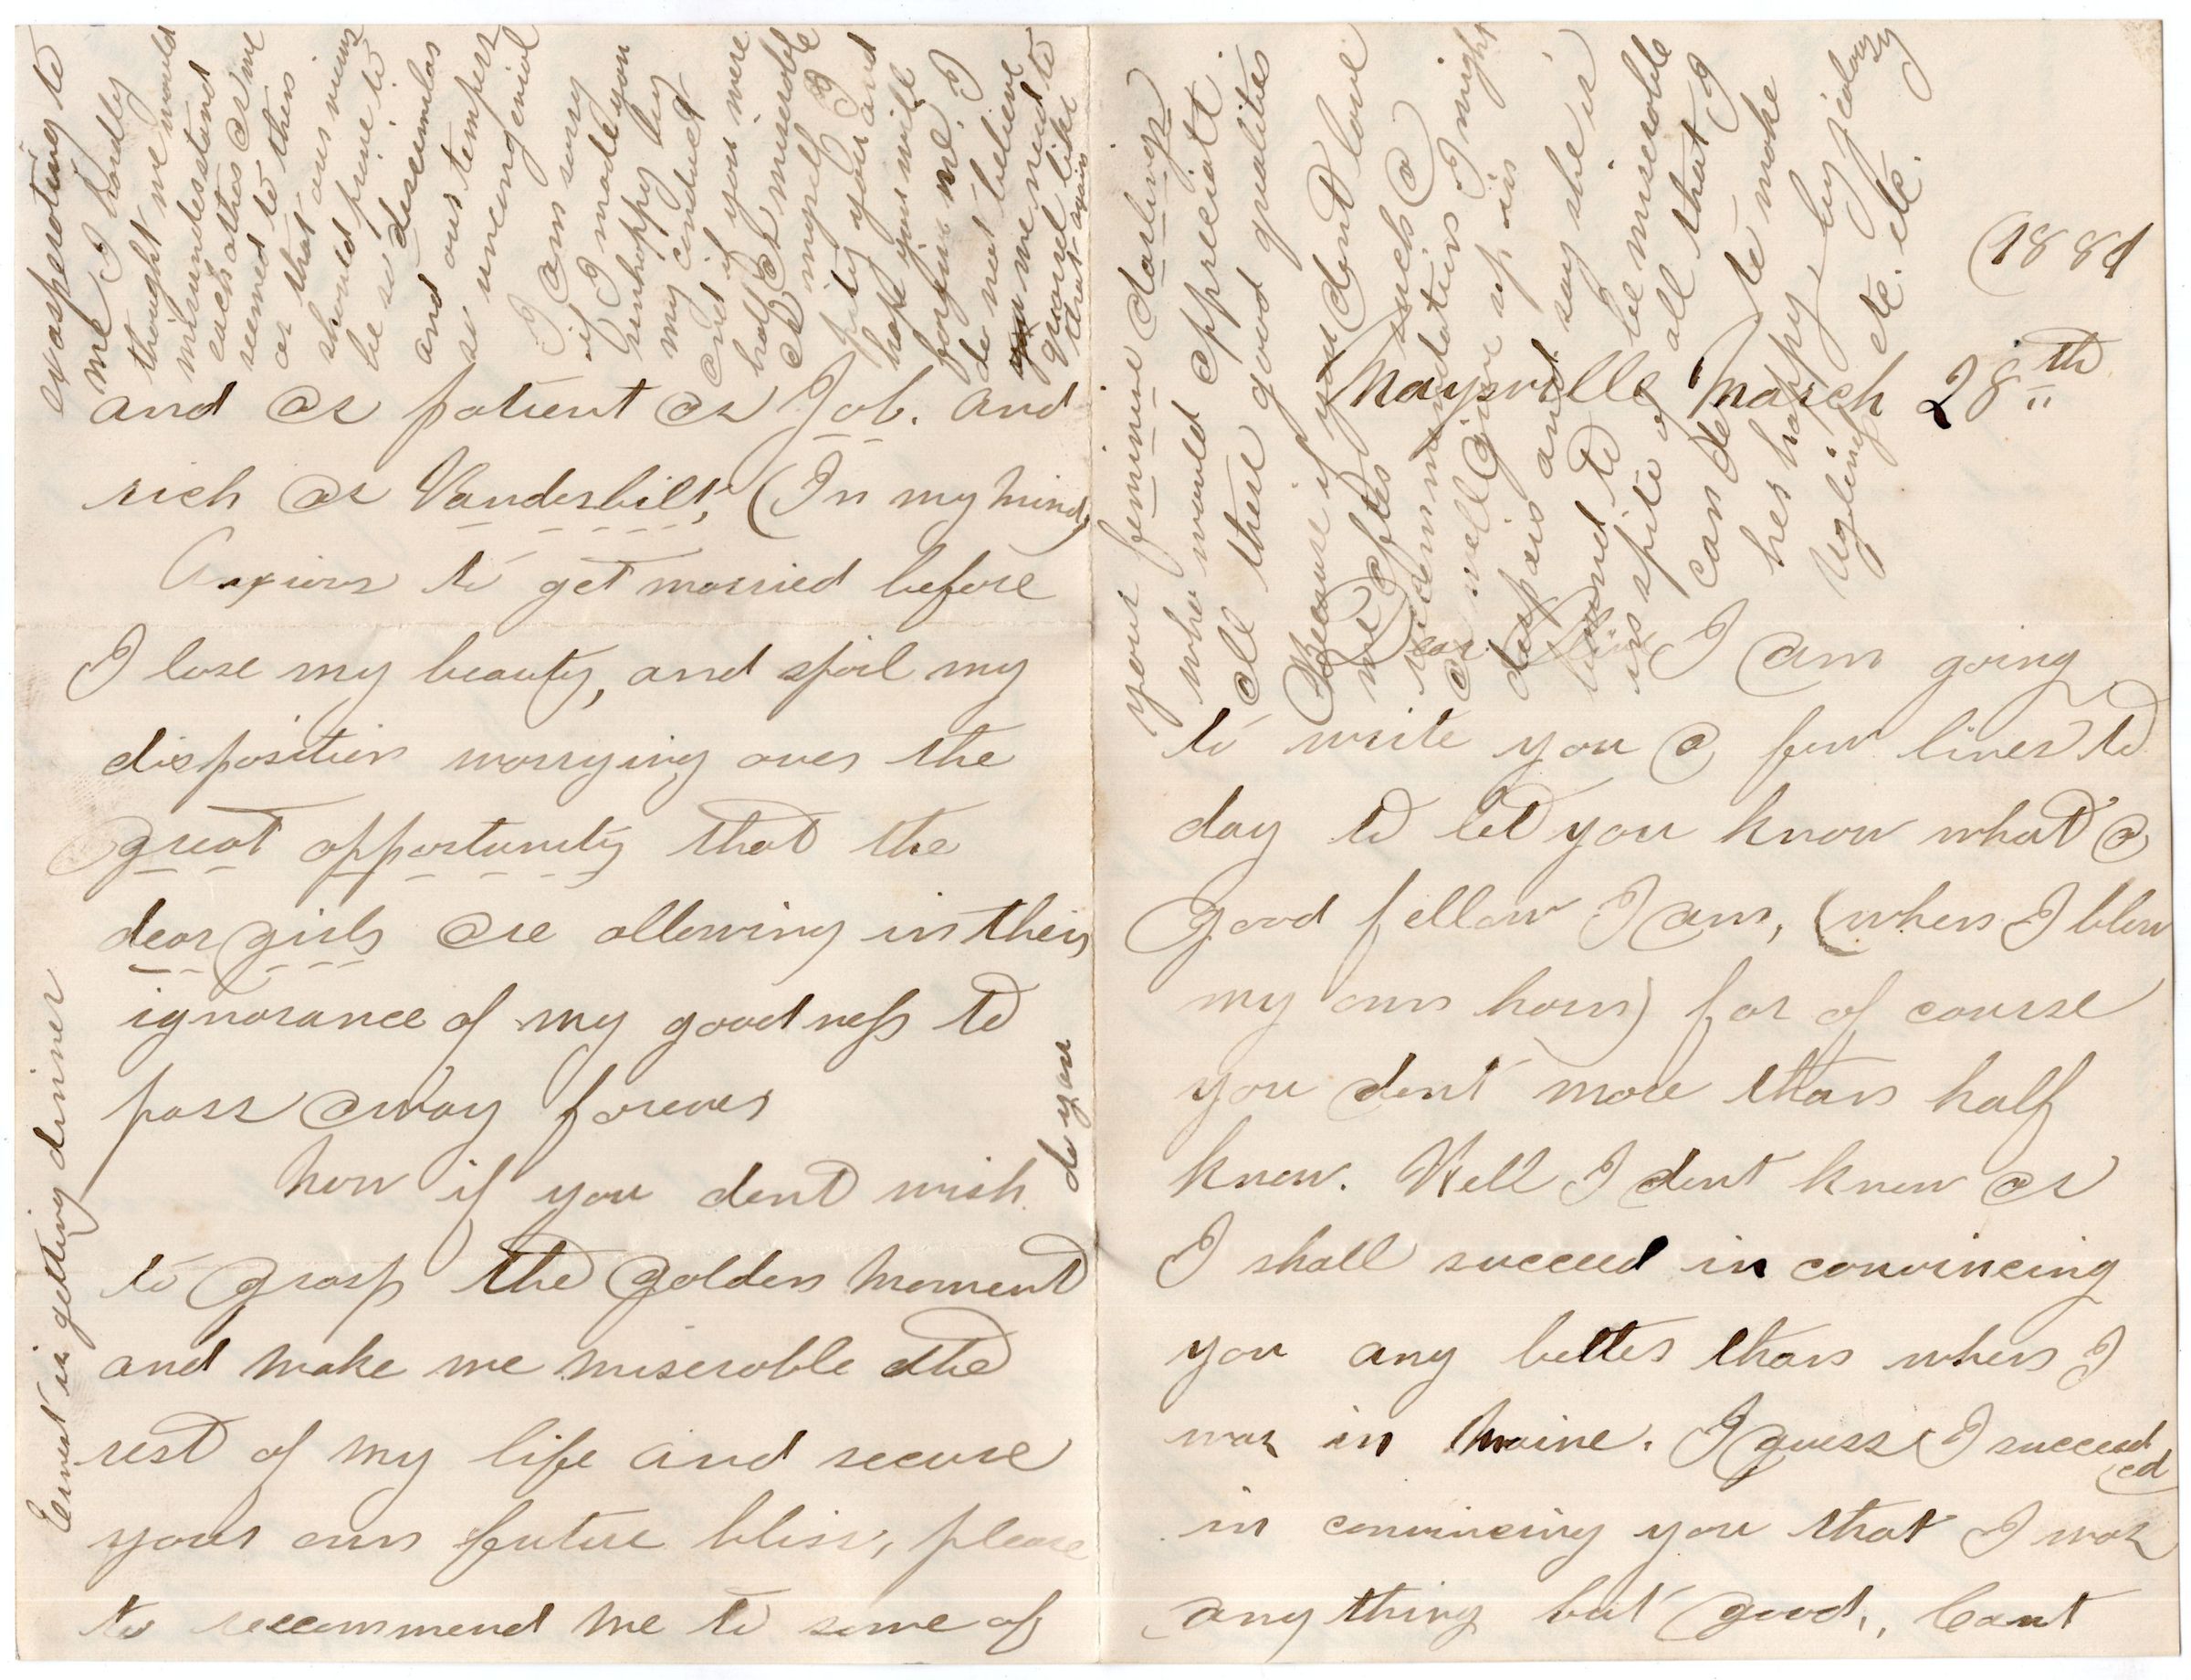 (1881
Maysville March 28th
Dear I am going
to write you a few lines to
day to let you know what a
good fellow I am, (when I blow
my own horn) for of course
you dont more than half
know. Well I dont know as
I shall succeed in convincing
you any better than when I
was in Maine. I guess I succeed
ed
in convincing you that I was
any thing but good,. Cant
and as patient as Job. and
rich as Vanderbilt, (In my mind)
Anxious to get married before
I lose my beauty, and spoil my
disposition worrying over the
great opportunity that the
dear girls are allowing in their
ignorance of my goodness to
pass away forever
Now if you dont wish
to grasp the golden moment
and make me miserable the
rest of my life and secure
your own future bliss, please
to recommend me to some of
your feminine darlings
who would appreciate
all these good qualities
Because if you dont love
me after such a
recommendation I might
as well give up in
despair and say she is
bound to be miserable
in spite of all that I
can do to make
her happy, by jealousy
Uglines etc. etc.
exasperating to
me I hardly
thought we would
misunderstand
each other as we
seemed to then
or that our views
should prove to
be so dissimilar
and our tempers
so uncongenial
I am sorry
if I made you
unhappy by
my conduct
and if you were
half as miserable
as myself I
pity you and
hope you will
forgive me. I
do not believe
we need to
quarrel like
that again
do you
Ernest is getting dinner